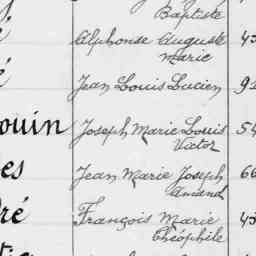 Baptiste
Alphonse Auguste 45
Marie
Jean Louis Lucien 92
ouin Joseph Marie Louis 54
Victor
es Jean Marie Joseph 66
Amand
dré François Marie 45
Théophile